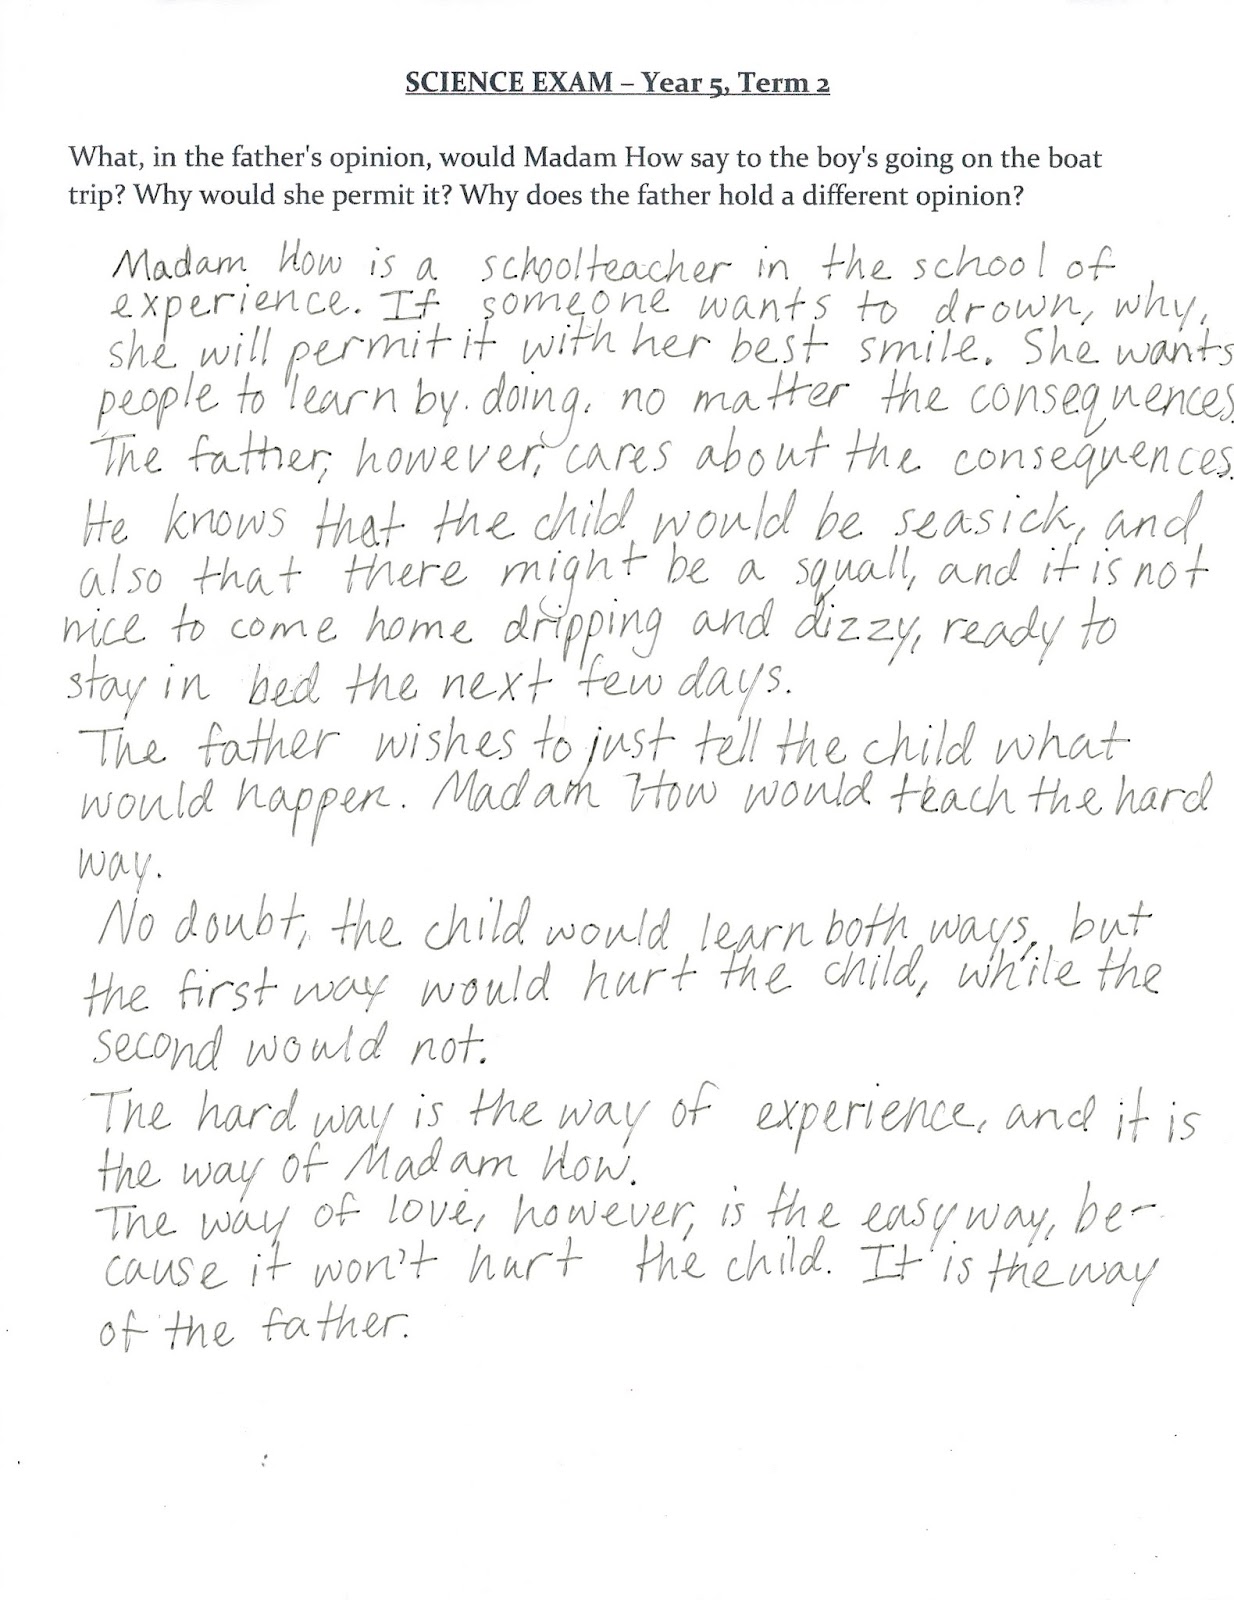 SCIENCE EXAM – Year 5, Term 2
What, in the father's opinion, would Madam How say to the boy's going on the boat
trip? Why would she permit it? Why does the father hold a different opinion?
Madam How is a schoolteacher in the school of
experience. If someone wants to drown, why,
she will permit it with her best smile. She wants
people to learn by doing, no matter the consequences.
The father, however, cares about the consequences.
He knows that the child would be seasick, and
also that there might be a squall, and it is not
nice to come home dripping and dizzy, ready to
stay in bed the next few days.
The father wishes to just tell the child what
would happen. Madam How would teach the hard
way.
No doubt, the child would learn both ways, but
the first way would hurt the child, while the
second would not.
The hard way is the way of experience, and it is
the way of Madam How.
The way of love, however, is the easy way, be-
cause it won't hurt the child. It is the way
of the father.